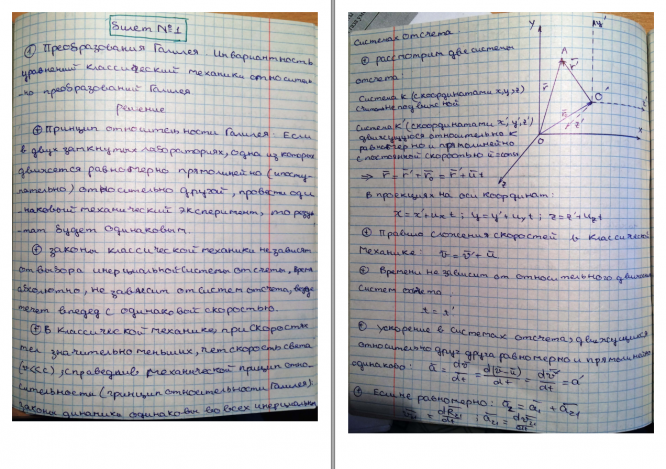 Билет №1
① Преобразования Галилея. Инвариантность
уравнений классический механики относител-
-но преобразований Галилея
Решение
Принцип относительности Галилея: Если
в двух замкнутых лабораториях, одна из которых
движется равномерно прямолинейно (посту-
пательно) относительно другой, провести оди-
наковой механический эксперимент, то резуль-
тат будет одинаковым.
законы классической механики не зависят
от выбора инерциальной системы отсчёта, время
абсолютно, не зависит от систем отсчёта, везде
течет вперед с одинаковой скоростью.
В классической механике, при скоростях
тел значительно меньших, чем скорость света
(v<<c), справедлив механический принцип отно-
сительности (принцип относительности Галилея).
Законы динамики одинаковы во всех инерциальн
системах отсчета
рассмотрим две системы
отсчета
Система K (с координатами x, y, z)
неподвижной
Система K' (с координатами x', y', z')
движущуюся относительно K
равномерно и прямолинейно
с постоянной скоростью ū
=> r̄ = r̄' + r̄₀ = r̄' + ūt
y
y'
A
r̄
r̄'
O'
O
x
z
z'
В проекциях на оси координат:
x = x' + uₓt ; y = y' + uᵧt ; z = z' + u_z t
Правило сложения скоростей в классической
механике: v̄ = v̄' + ū
Времени не зависит от относительного движения
систем отсчета
t = t'
ускорение в системах отсчета, движущихся
относительно друг друга равномерно и прямолинейно
одинаково: ā = dv̄/dt = d(v̄-ū)/dt = dv̄'/dt = ā'
Если не равномерно: ā₂ = ā₁ + ā₂₁